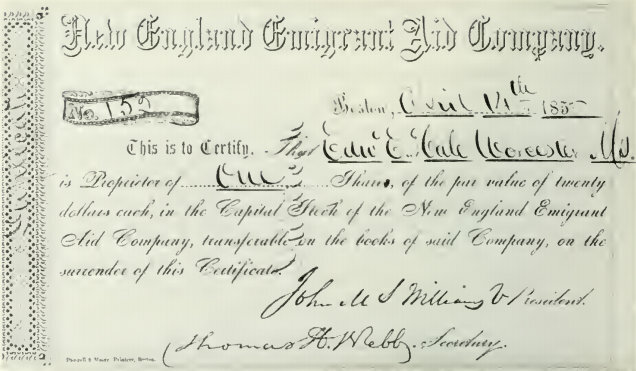 New England Emigrant Aid Company.
No. 152
Boston, April 14th 1855
This is to Certify. That Edw E. Hale Worcester Ms.
is Propietor of One Shares, of the par value of twenty
dollars each, in the Capital Stock of the New England Emigrant
Aid Company, transferable on the books of said Company, on the
surrender of this Certificate.
John M S Williams V President.
Thomas H. Webb, Secretary.
Printers, Boston.